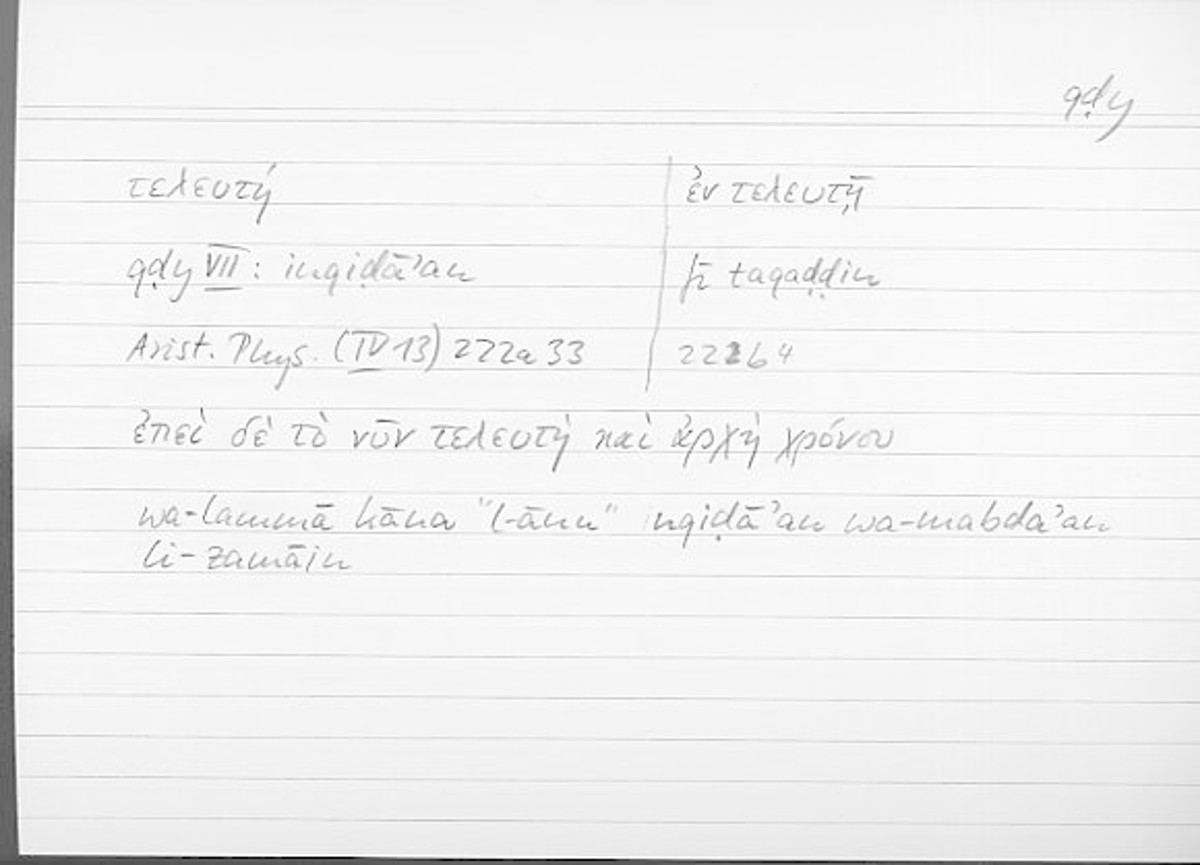 qḍy
τελευτή | ἐν τελευτῇ
qḍy VII: inqiḍāʾan | fī taqaḍḍin
Arist. Phys. (IV 13) 222a 33 | 222b 4
ἐπεὶ δὲ τὸ νῦν τελευτὴ καὶ ἀρχὴ χρόνου
wa-lammā kāna "l-ānu" inqiḍāʾan wa-mabdaʾan
li-zamāin